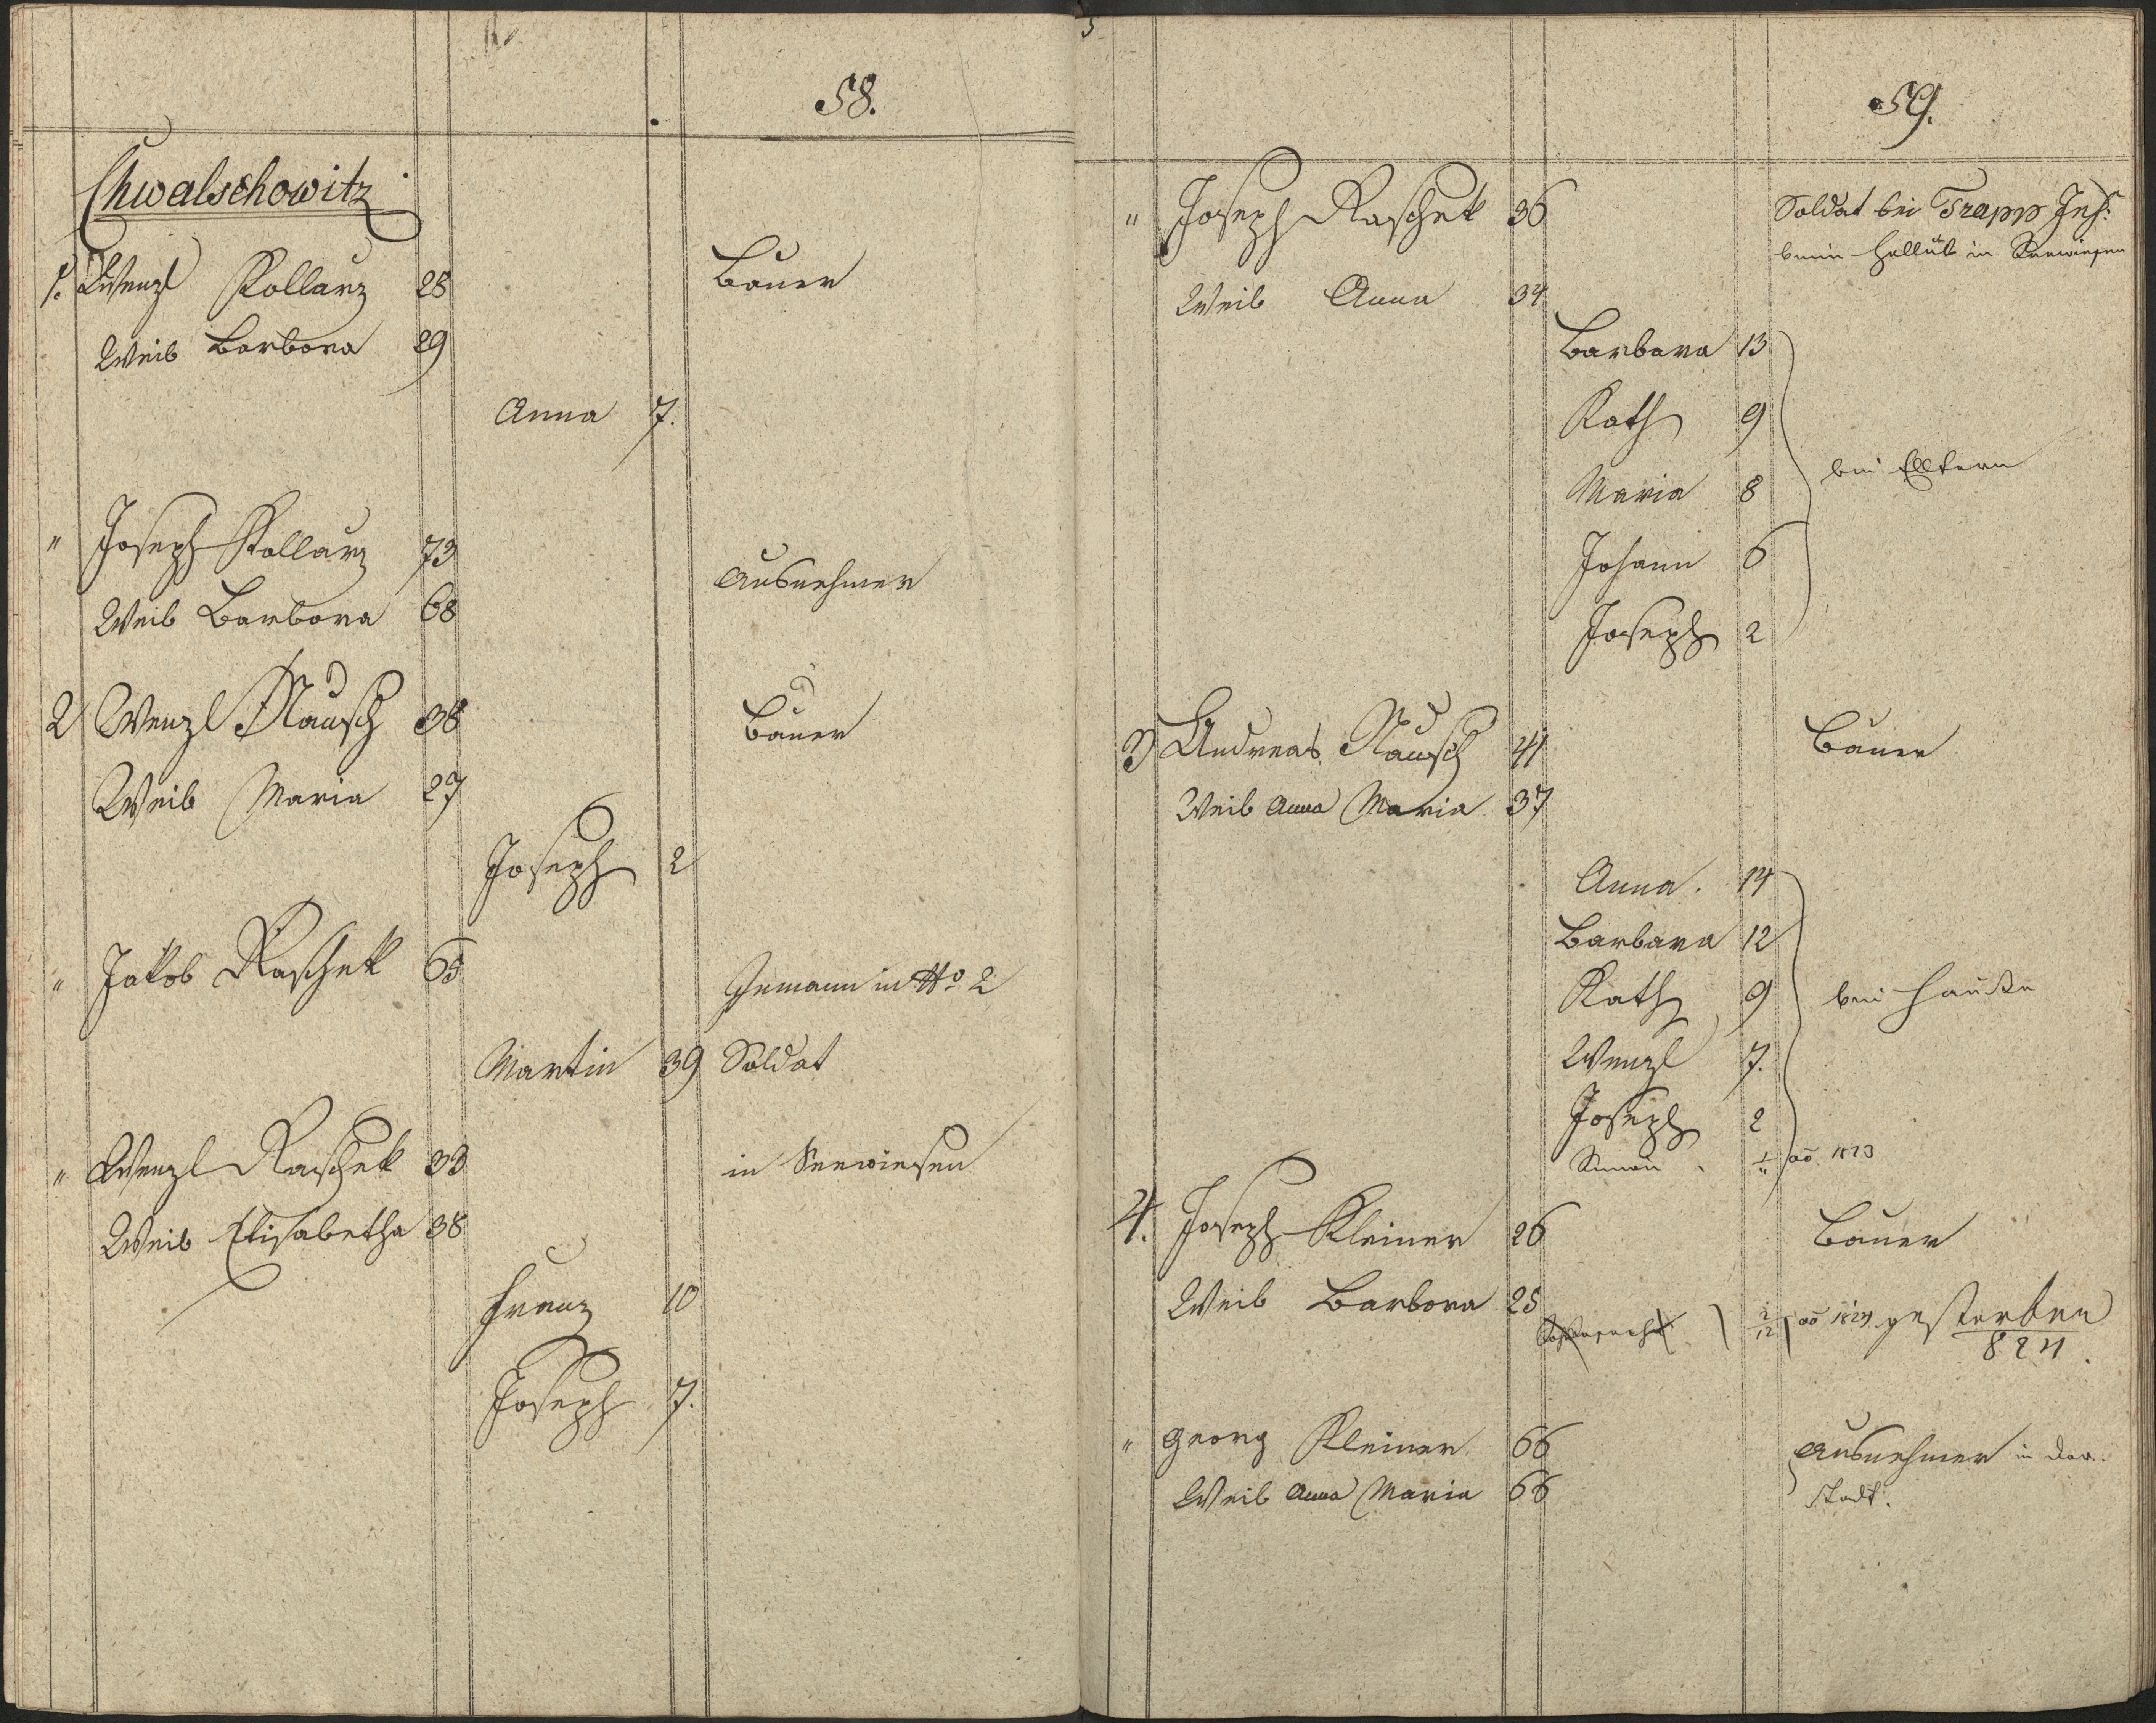 58.
Chwalschowitz
1. Wenzl Kollarz 28 Bauer
Weib Barbora 29
Anna 7.
" Joseph Kollarz 73 Ausnehmer
Weib Barbora 68
2 Wenzl Rausch 38 Bauer
Weib Maria 27
Joseph 2
" Jakob Raschek 65 Inmann in No 2
Martin 39 Soldat
" Wenzl Raschek 33 in Seewiesen
Weib Elisabetha 38
Franz 10
Joseph 7.
59.
" Joseph Raschek 36 Soldat bei Trapp Inf:
beim Hollub in Seewiesen
Weib Anna 34
Barbara 13
Kath 9
Maria 8 bei Elltern
Johann 6
Joseph 2
3 Andreas Rausch 41 Bauer
Weib Anna Maria 37
Anna. 14
Barbara 12
Kath 9 bei Hauße
Wenzl 7.
Joseph 2
Simon 1/" ao 1823
4. Joseph Kleiner 26 Bauer
Weib Barbora 25
2/12 ao 1824 gestorben
824.
" Georg Kleiner 66 Ausnehmer in der
Weib Anna Maria 66 Stadt.